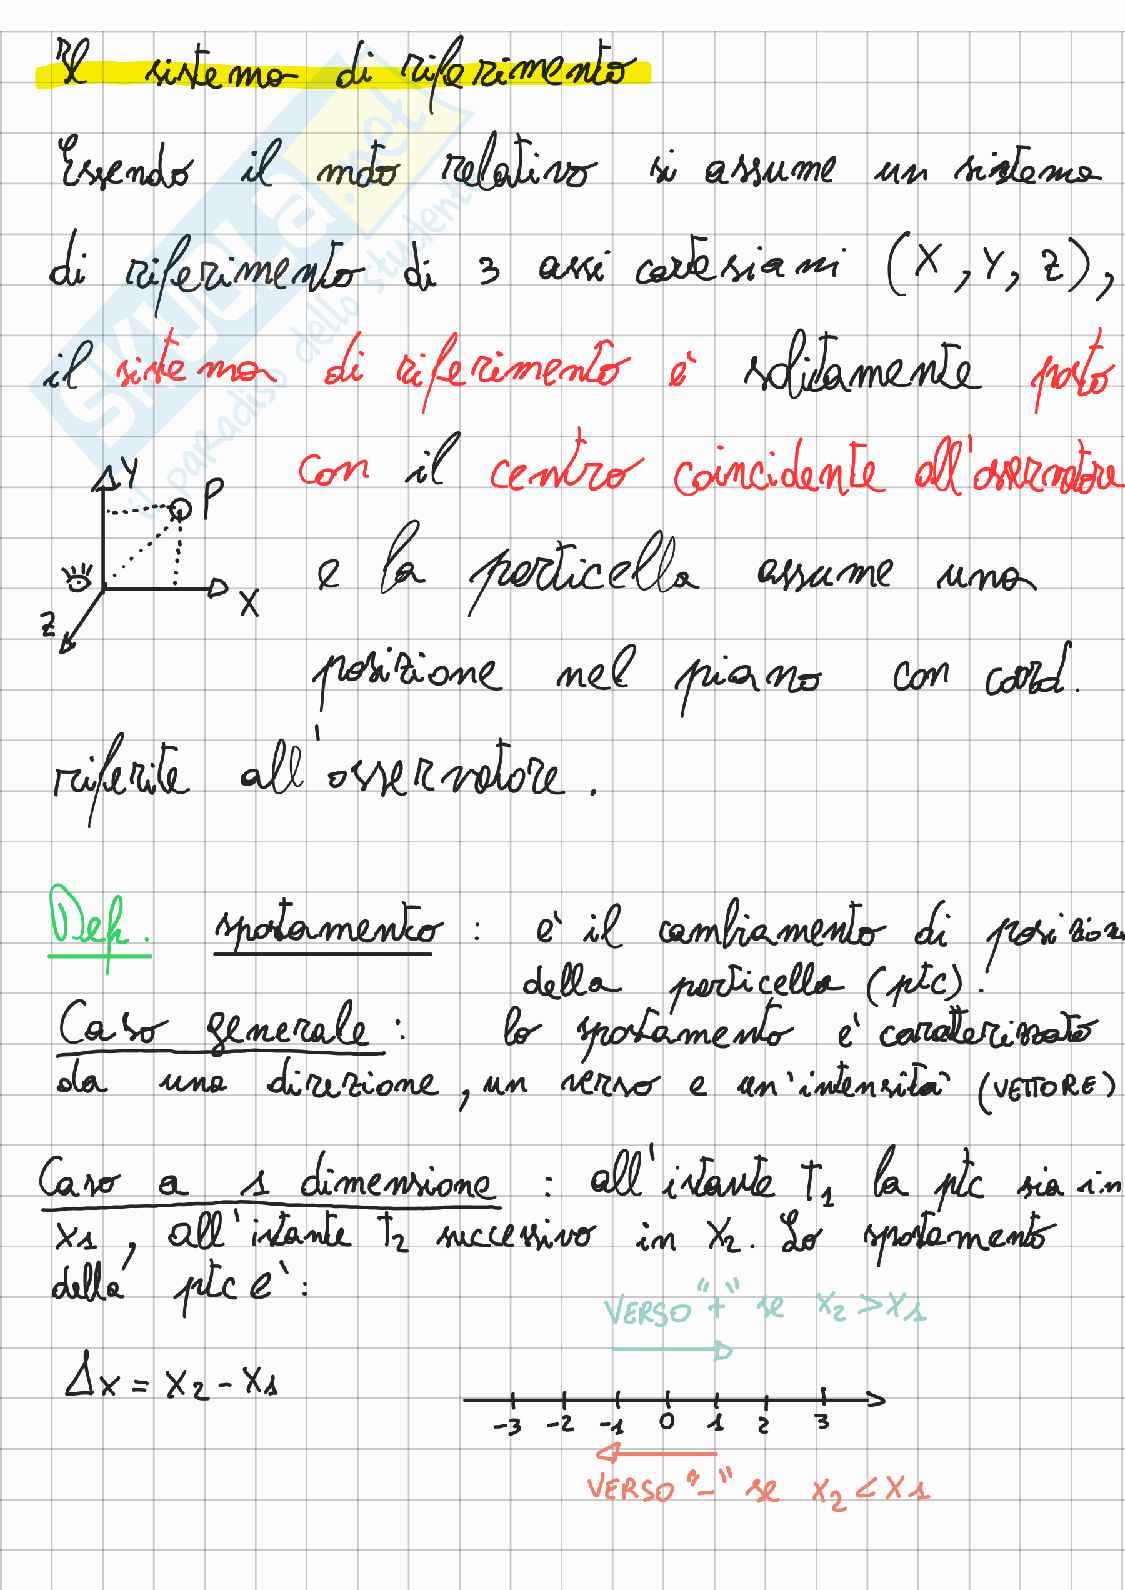 Il sistema di riferimento
Essendo il moto relativo si assume un sistema
di riferimento di 3 assi cartesiani (X, Y, Z),
il sistema di riferimento è solitamente posto
con il centro coincidente all'osservatore
Y
P
X
Z
e la particella assume una
posizione nel piano con coord.
riferite all'osservatore.
Def. spostamento: è il cambiamento di posizione
della particella (ptc).
Caso generale: lo spostamento è caratterizzato
da una direzione, un verso e un'intensità (VETTORE)
Caso a 1 dimensione: all'istante t₁ la ptc sia in
x₁, all'istante t₂ successivo in x₂. Lo spostamento
della ptc è:
VERSO "+" se x₂ > x₁
Δx = x₂ - x₁
-3 -2 -1 0 1 2 3
VERSO "-" se x₂ < x₁
SKUOLA.net
il paradiso dello studente